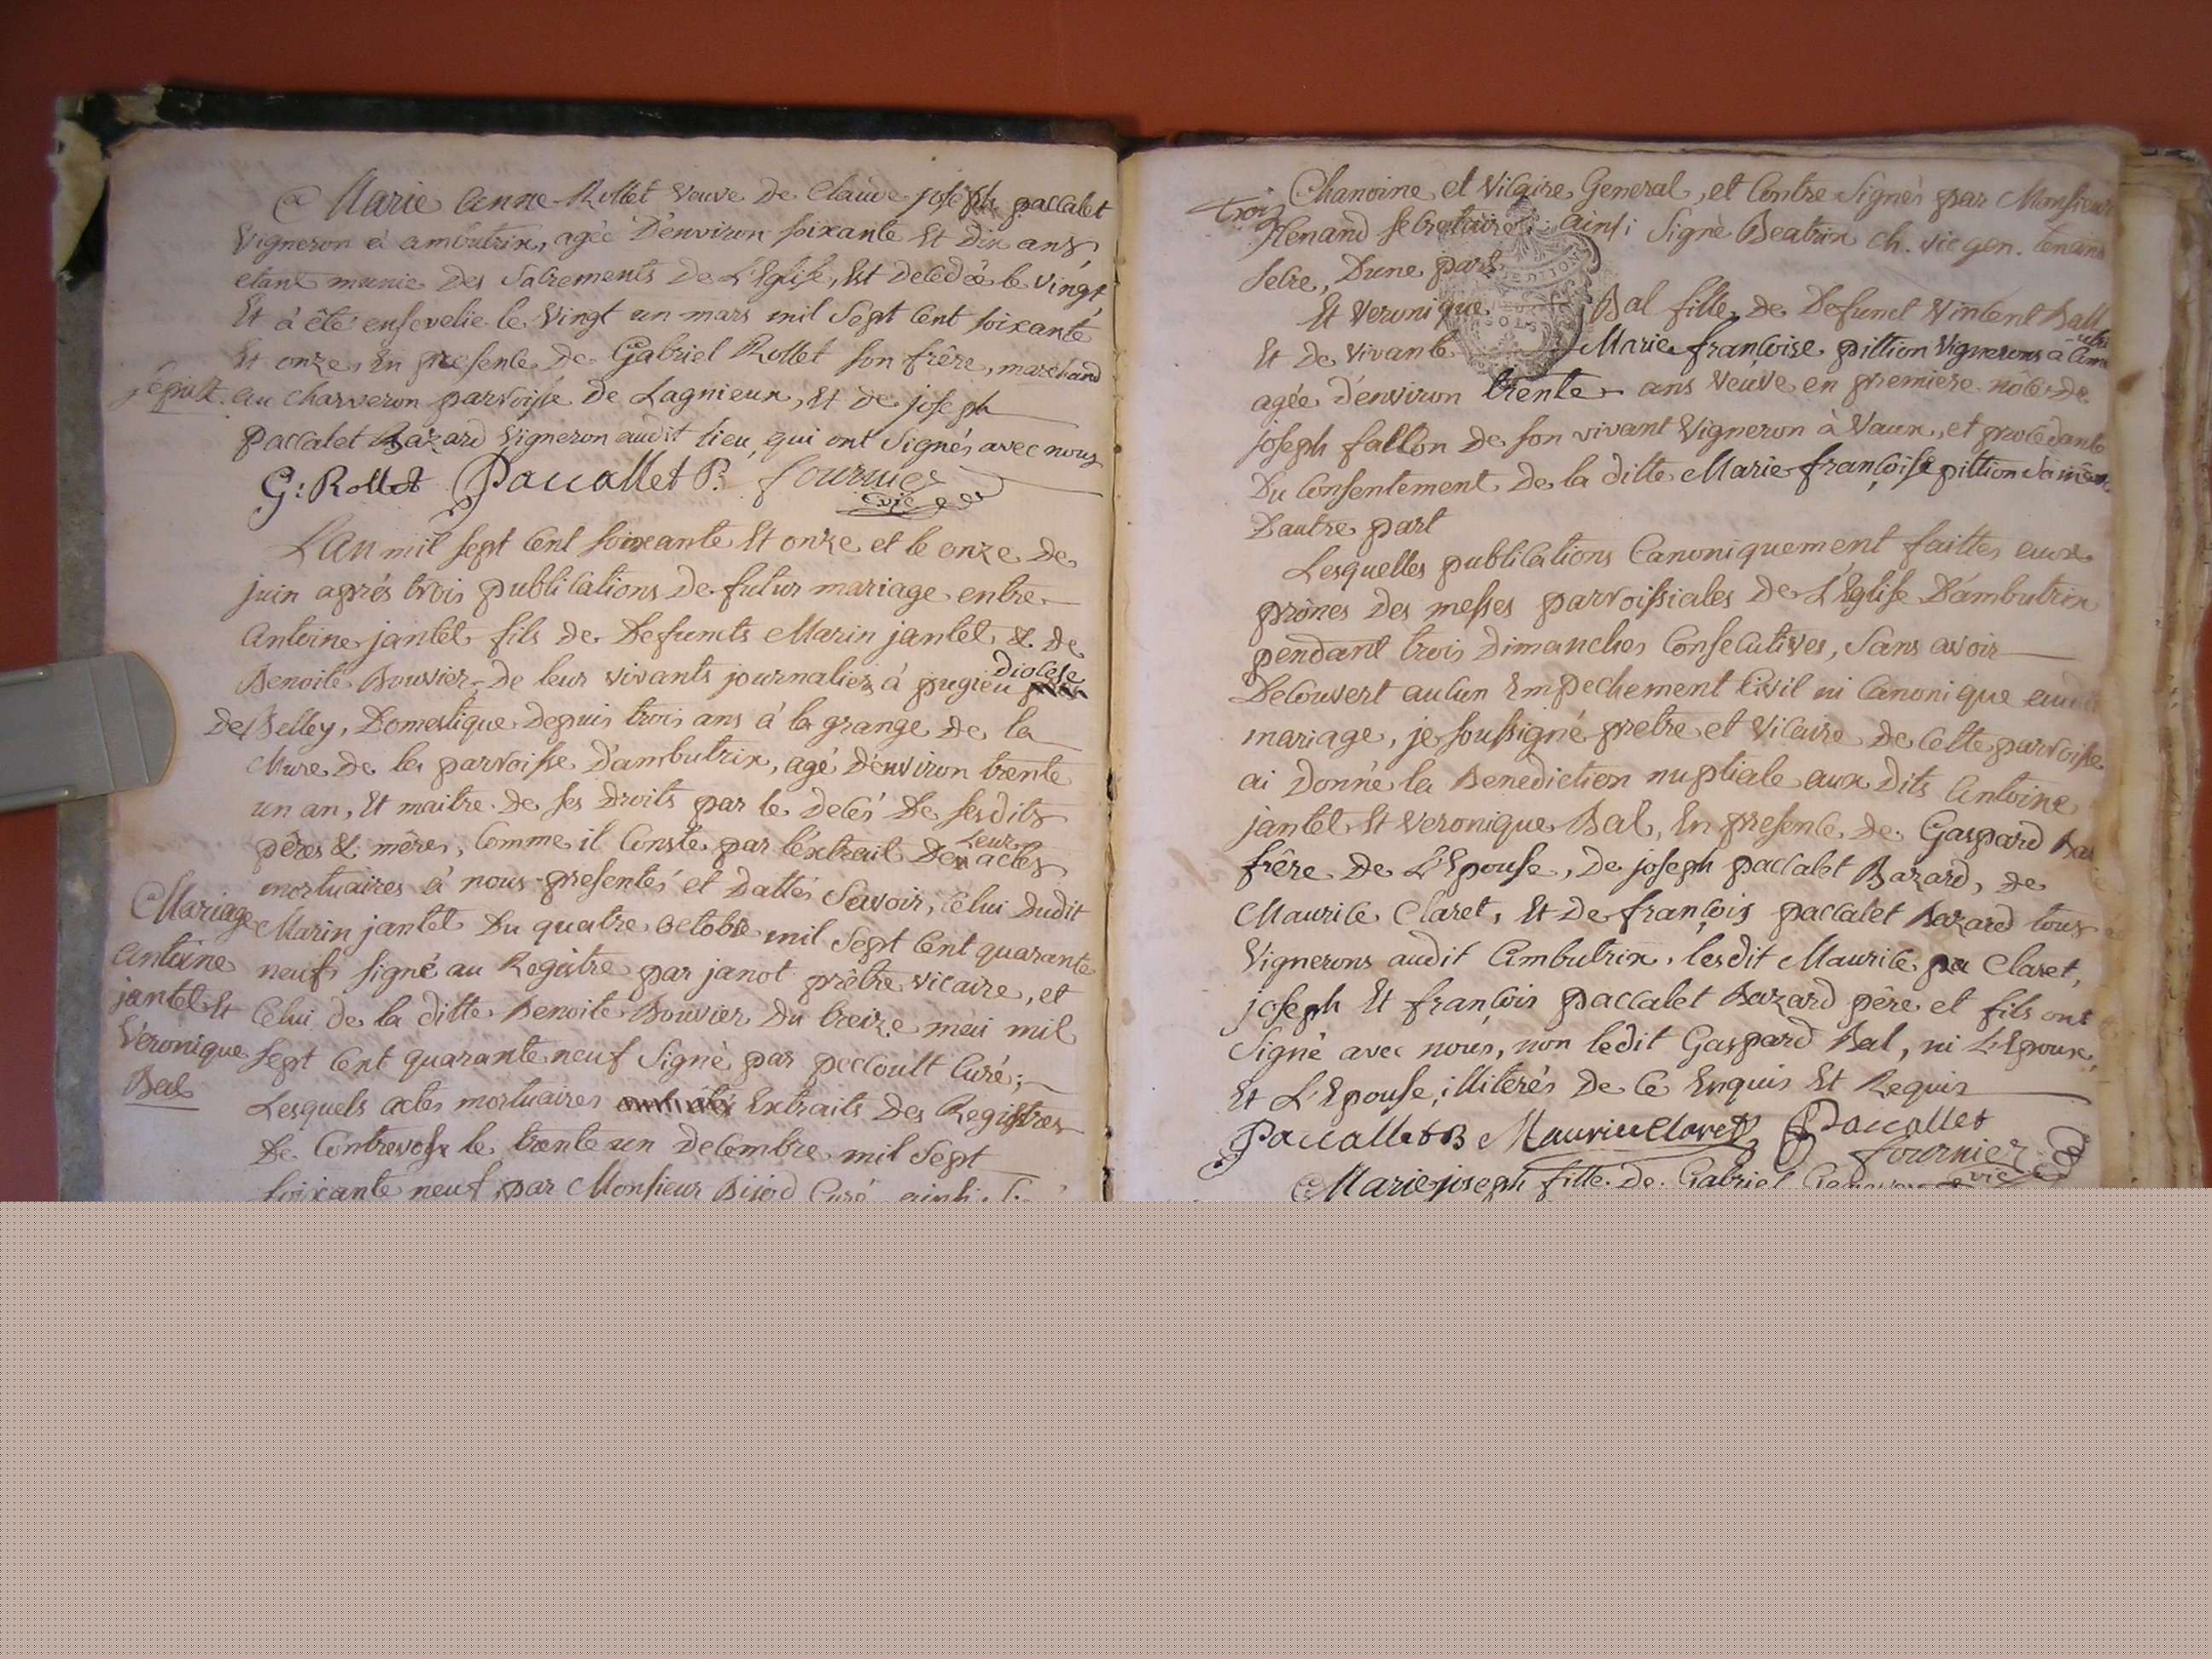 Marie Anne Rollet veuve de Claude joseph paccalet
vigneron à ambutrix, agée d'environ soixante Et dix ans,
etant munie des Sacrements de L'Eglise, Est decedée le vingt
Et à êté ensevelie le vingt un mars mil Sept Cent soixante
Et onze, En presence de Gabriel Rollet son frêre, marchand
sepult. au charveron parroisse de Lagnieux, Et de joseph
paccalet Bazard Vigneron audit lieu, qui ont Signés avec nous
G: Rollet Paccallet B. fournier
vic
L'An mil sept Cent soixante Et onze et le onze de
juin aprés trois publications de futur mariage entre
Antoine jantet fils de Defuncts Marin jantet & de
Benoite Bouvier, de leur vivants journaliers à pugieu diocese
de Belley, Domestique depuis trois ans à la grange de la
Mure de la parroisse d'ambutrix, agé d'environ trente
un an, Et maitre de ses droits par le decés de sesdits
pêres & mêres, Comme il Conste par l'extrait de leurs actes
mortuaires à nous presentés et dattés Savoir, Celui dudit
Marin jantet du quatre octobre mil Sept Cent quarante
neuf, signé au Registre par janot prêtre vicaire, et
Celui de la ditte Benoite Bouvier du treize mai mil
Sept Cent quarante neuf Signé par peccoult Curé;
Lesquels actes mortuaires Extraits des Registres
de Contrevoz le trente un decembre mil Sept
soixante neuf par Monsieur Bijod Curé ainsi
Mariage
Antoine
jantet Et
Veronique
Bal
trois
Chanoine et Vicaire General, et Contre Signés par Monsieur
Henand secretaire; ainsi Signé Beatrix ch. vic gen. henand
Secre, D'une part
Et Veronique Bal fille de Defunct Vincent Ball
Et de vivante Marie françoise pittion vignerons à Ambutrix
agée d'environ trente ans veuve en premiere nôces de
joseph fallon de son vivant Vigneron à Vaux, et procedante
Du Consentement de la ditte Marie françoise pittion sa mère
D'autre part
Lesquelles publications Canoniquement faittes aux
prônes des messes parroissiales de L'Eglise D'ambutrix
pendant trois Dimanches Consecutives, Sans avoir
Decouvert aucun Empechement Civil ni Canonique audit
mariage, je soussigné pretre et Vicaire de Cette parroisse
ai Donné la Benediction nuptiale aux dits Antoine
jantet Et Veronique Bal, En presence de Gaspard Bal
frêre de L'Epouse, de joseph paccalet Bazard, de
Maurice Claret, Et de françois paccalet Bazard tous
Vignerons audit Ambutrix. lesdit Maurice Claret,
joseph Et françois paccalet Bazard pêre et fils ont
Signé avec nous, non ledit Gaspard Bal, ni L'Epoux,
Et L'Epouse, illiterés de Ce Enquis Et Requis
Paccallet B Maurice Claret Paccallet
fournier
vic
Marie joseph fille de Gabriel